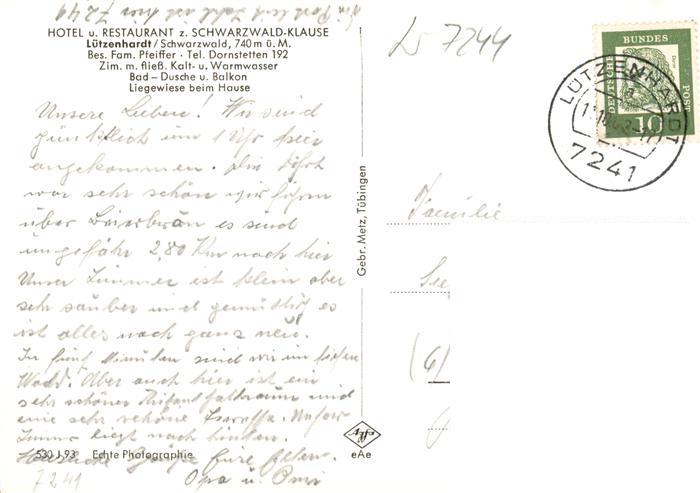 die Postleitzahl ist hier 7241
HOTEL u. RESTAURANT z. SCHWARZWALD-KLAUSE
Lützenhardt/Schwarzwald, 740 m ü. M.
Bes. Fam. Pfeiffer · Tel. Dornstetten 192
Zim. m. fließ. Kalt- u. Warmwasser
Bad – Dusche u. Balkon
Liegewiese beim Hause
Unsere Lieben! Wir sind
pünktlich um 1 Uhr hier
angekommen. Die Fahrt
war sehr schön wir fuhren
über es sind
ungefähr 2,80 Km nach hier
Unser Zimmer ist klein aber
sehr sauber und gemütlich es
ist alles noch ganz neu.
In fünf Minuten sind wir im tiefen
Wald. Aber auch hier ist ein
sehr schöner Aufenthaltsraum und
eine sehr schöne Terrasse. Unser
Zimmer liegt nach hinten.
530 J 93 Echte Photographie
Herzliche Grüße Eure Eltern.
7241 Opa u. Omi
Gebr. Metz, Tübingen
Agfa
eAe
D-7244
DEUTSCHE BUNDES POST
10
LÜTZENHARDT
a
7241
Familie
See
(6)